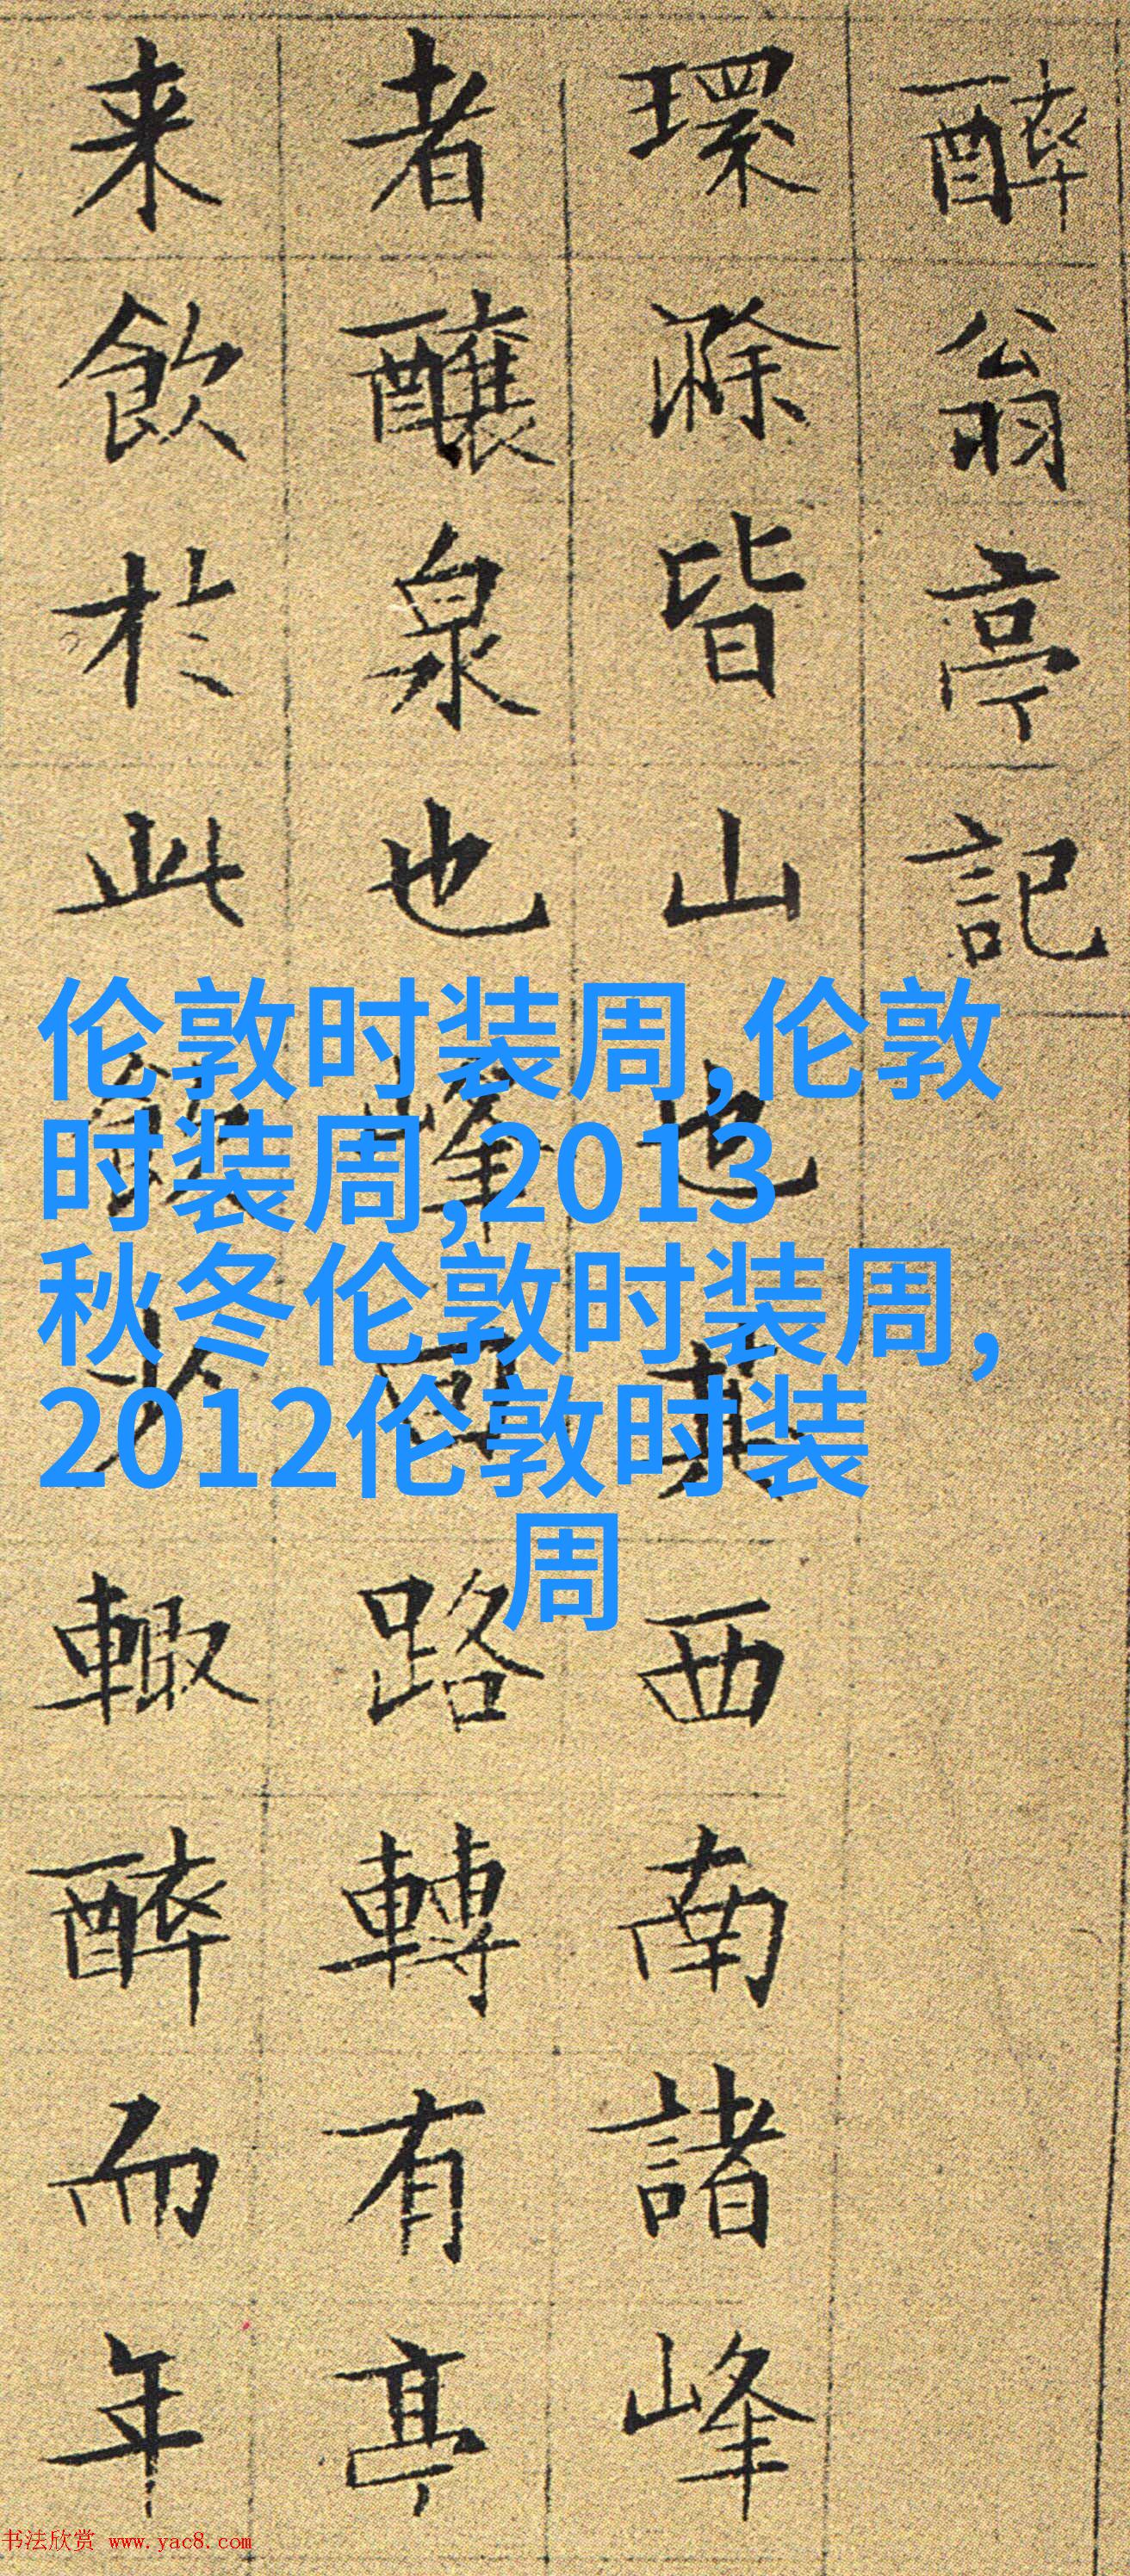 醉翁亭記
環滁皆山也其西南諸峰
者釀泉也峰回路轉有亭
来飲於此飲少輒醉而年
伦敦时装周,伦敦
时装周,2013
秋冬伦敦时装周,
2012伦敦时装
周
书法欣赏 www.yac8.com